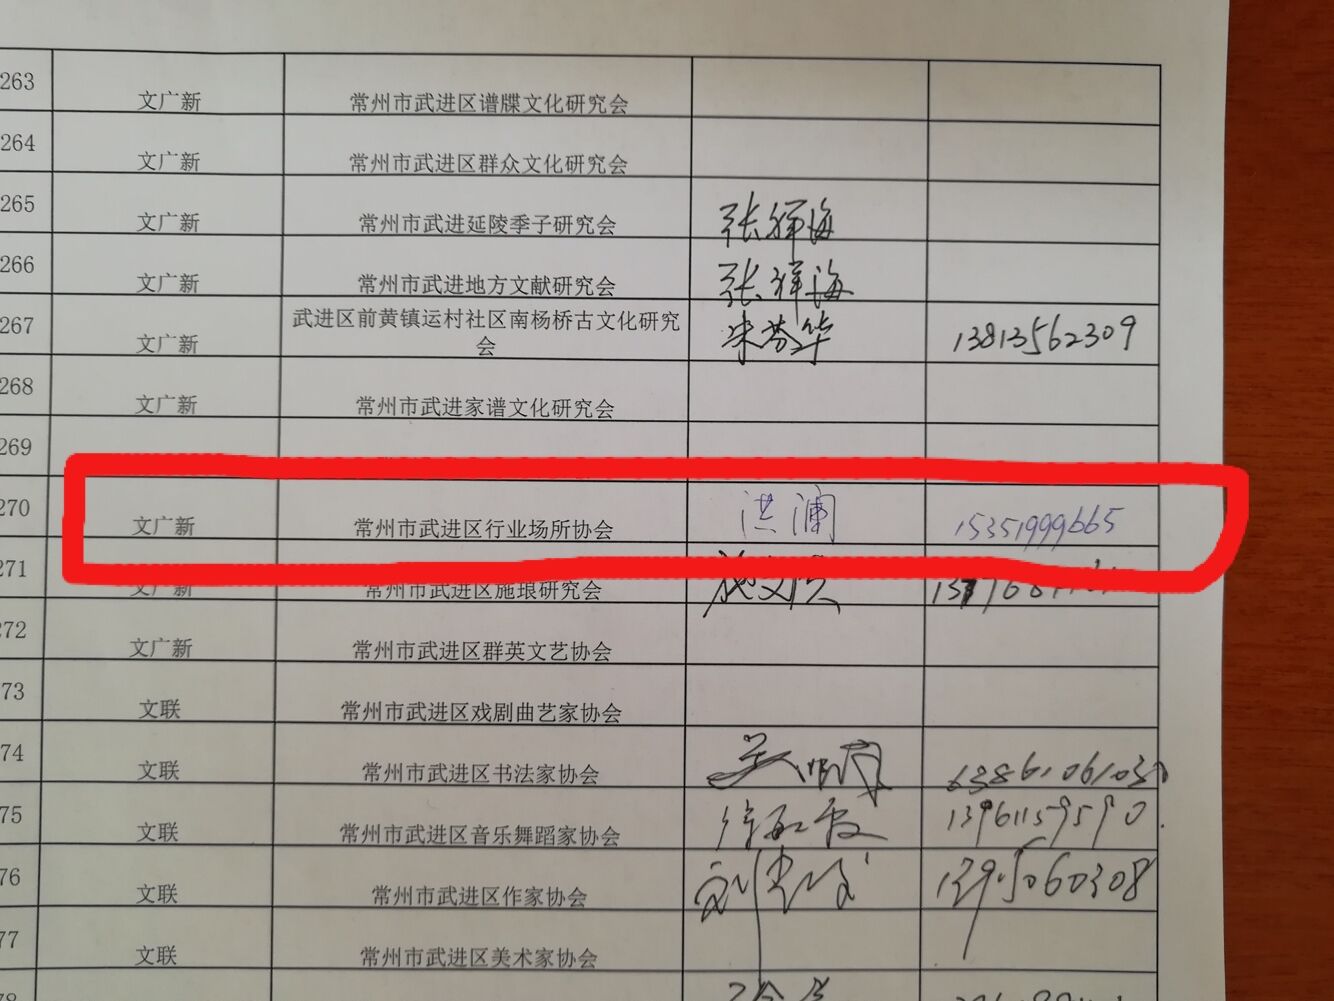 263 文广新 常州市武进区谱牒文化研究会
264 文广新 常州市武进区群众文化研究会
265 文广新 常州市武进延陵季子研究会 张祥海
266 文广新 常州市武进地方文献研究会 张祥海
267 文广新 武进区前黄镇运村社区南杨桥古文化研究
会 朱芬华 13813562309
268 文广新 常州市武进家谱文化研究会
269
270 文广新 常州市武进区行业场所协会 洪澜 15351999665
271 文广新 常州市武进区施琅研究会
272 文广新 常州市武进区群英文艺协会
73 文联 常州市武进区戏剧曲艺家协会
74 文联 常州市武进区书法家协会
75 文联 常州市武进区音乐舞蹈家协会 13961159590
76 文联 常州市武进区作家协会
77 文联 常州市武进区美术家协会